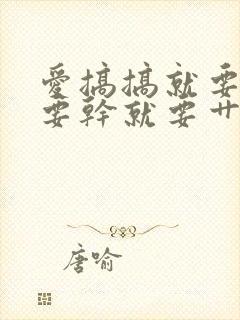 愛搞搞就要
要幹就要
唐喻